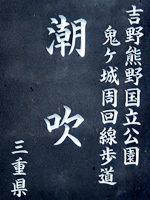 吉野熊野国立公園
鬼ケ城周回線歩道
潮吹
三重県